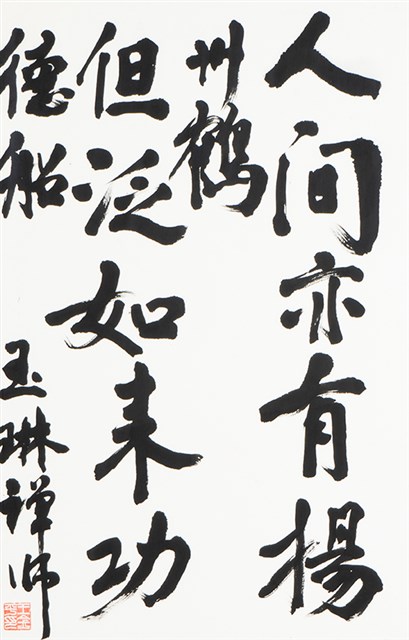 人间亦有揚
州鹤
但泛如来功
德船
玉琳禅师